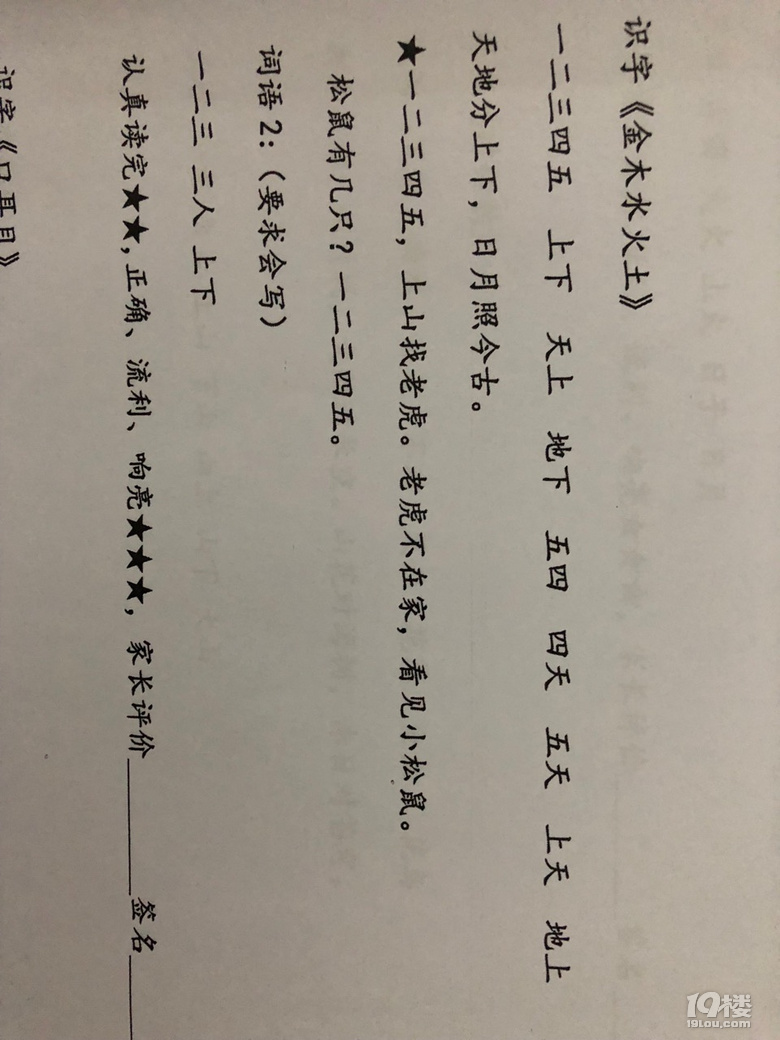 识字《金木水火土》
一二三四五 上下 天上 地下 五四 四天 五天 上天 地上
天地分上下，日月照今古。
★一二三四五，上山找老虎。老虎不在家，看见小松鼠。
松鼠有几只？一二三四五。
词语2：（要求会写）
一二三 三人 上下
认真读完★★，正确、流利、响亮★★★，家长评价______签名____
识字《口耳目》
19楼
19lou.com